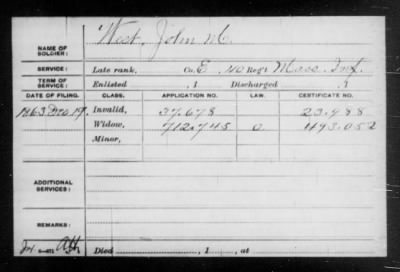 NAME OF SOLDIER: West, John M.
SERVICE: Late rank, Co. E, 40 Reg't Mass. Inf.
TERM OF SERVICE: Enlisted , 1 Discharged , 1
DATE OF FILING. CLASS. APPLICATION NO. LAW. CERTIFICATE NO.
1863 Dec 19. Invalid, 37.678 23.988
Widow, 712.745 493.052
Minor,
ADDITIONAL SERVICES:
REMARKS:
Died , 1 , at